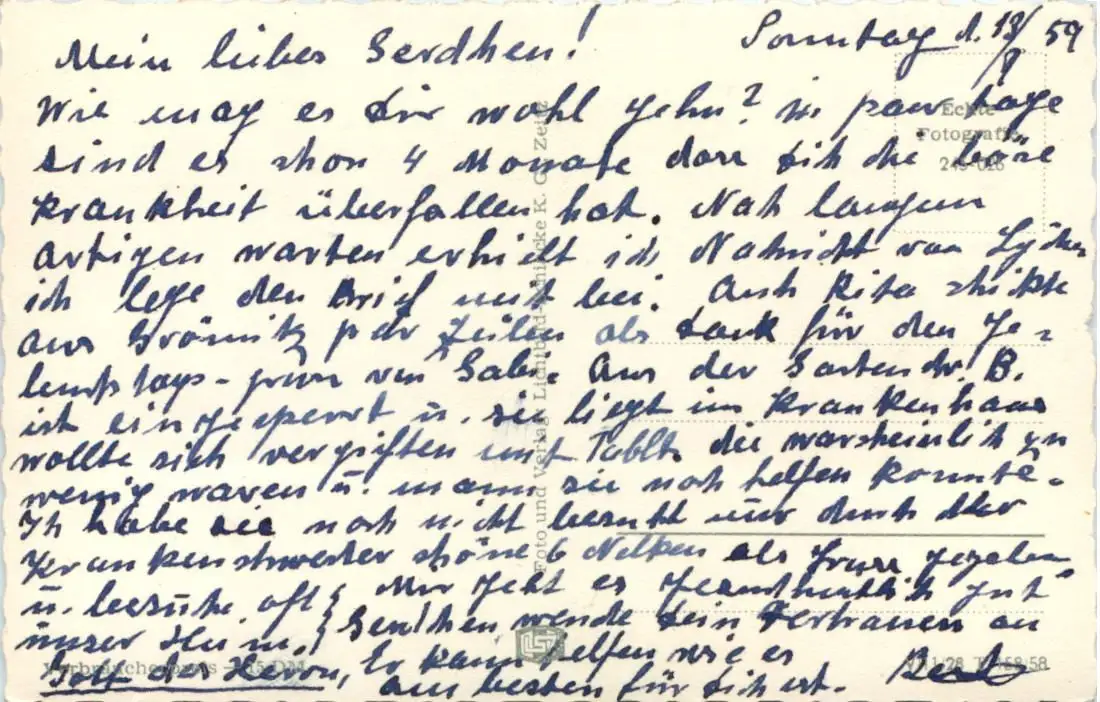 Sonntag d. 13/9 59
Mein liebes Gerdchen!
Wie mag es dir wohl gehn? in paar tage
sind es shon 4 Monate dass dich die böse
Krankheit überfallen hat. Nah langem
artigen warten erhielt ich Nahricht von
ich lege den Brief mit bei. Auch Rita shikte
aus Grömitz par Zeilen als dank für den Ge-
von Gabi. Aus der Garten dr. B.
ist eingesperrt u. sie liegt im Krankenhaus
wollte sich vergiften mit Tablt. die warsheinlich zu
wenig waren u. mann sie noh helfen konnte.
Ih habe sie noch nicht besucht nur durch der
Krankenshwester shöne 6 Nelken als Gruss gegeben
u. besuche oft unser Heim.
Mir geht es gesundheitlich gut
Gerdhen wende dein Vertrauen an
Gott des Herrn, Er kann helfen wie es
am besten für dich ist. Bert
Echte
Fotografie
Foto und Verlag Lichtbild K. G. Zeitz
Verbraucherpreis DM